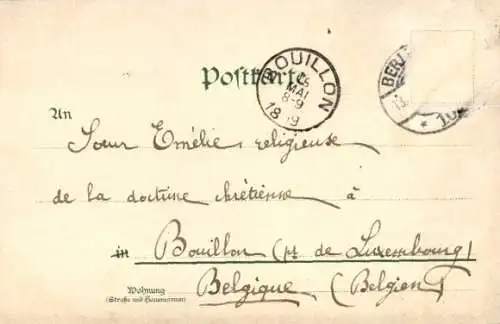 Postkarte
BOUILLON
MAI
8-9
BERL
An
Sœur Emélie, religieuse
de la doctrine chrétienne à
in Bouillon (pr. de Luxembourg)
Wohnung
(Straße und Hausnummer)
Belgique (Belgien)